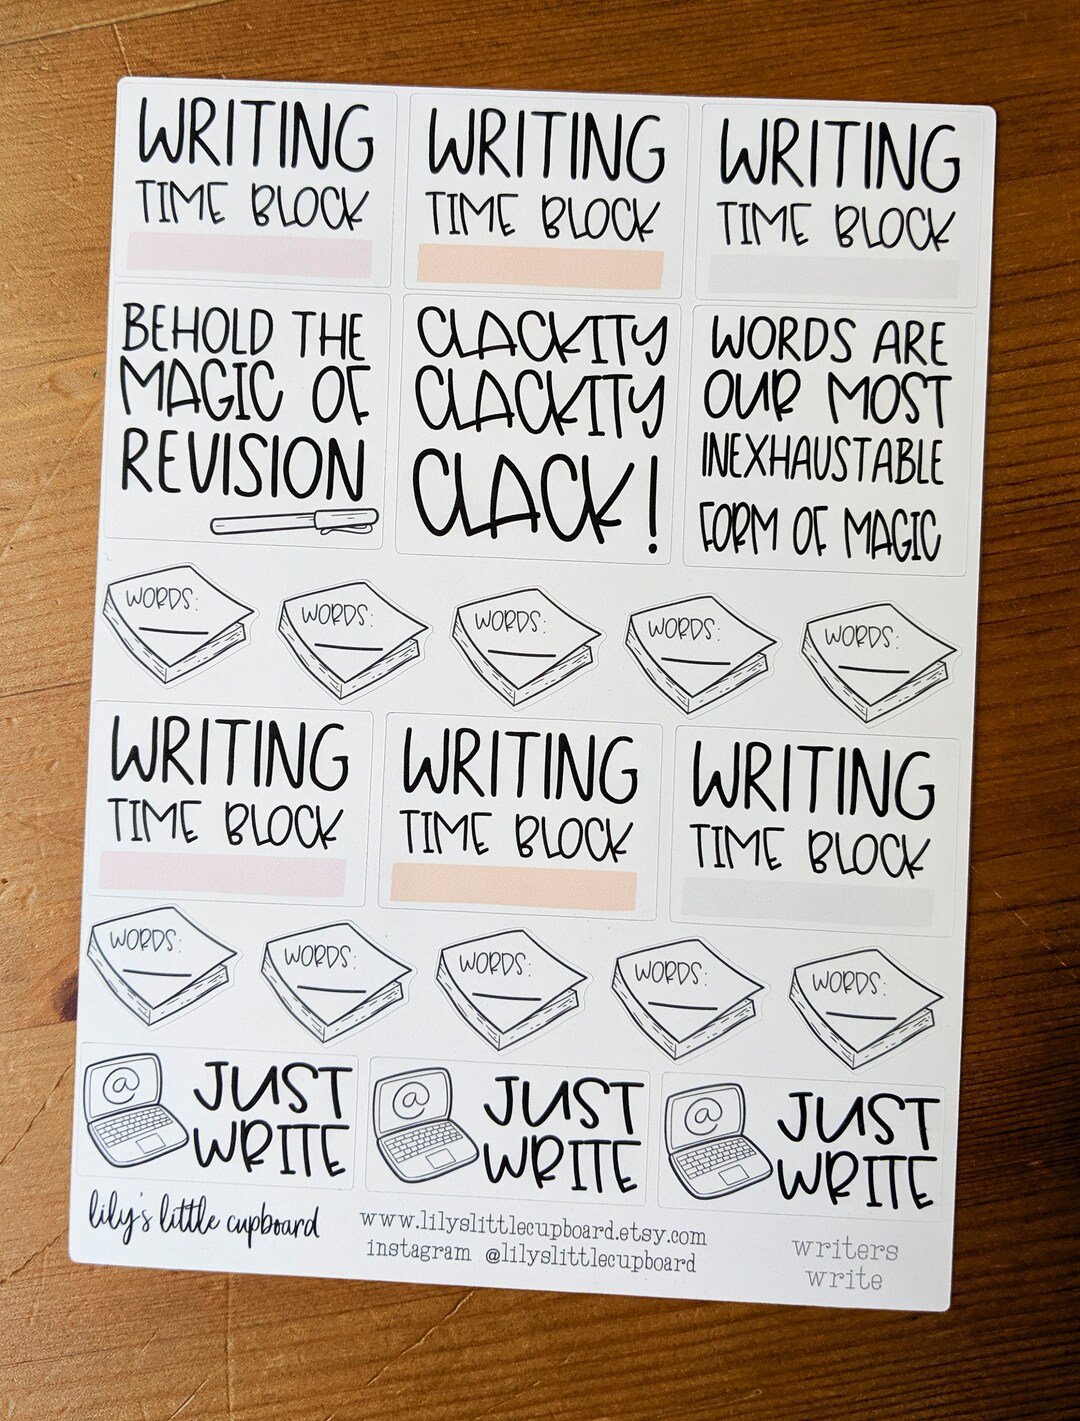 WRITING
TIME BLOCK
WRITING
TIME BLOCK
WRITING
TIME BLOCK
BEHOLD THE
MAGIC OF
REVISION
CLACKITY
CLACKITY
CLACK!
WORDS ARE
OUR MOST
INEXHAUSTABLE
FORM OF MAGIC
WORDS:
WORDS:
WORDS:
WORDS:
WORDS:
WRITING
TIME BLOCK
WRITING
TIME BLOCK
WRITING
TIME BLOCK
WORDS:
WORDS:
WORDS:
WORDS:
WORDS:
@
JUST
WRITE
@
JUST
WRITE
@
JUST
WRITE
lily's little cupboard
www.lilyslittlecupboard.etsy.com
instagram @lilyslittlecupboard
writers
write